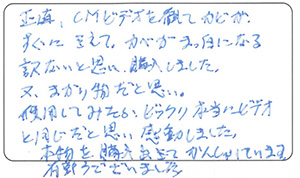 正直、CMビデオを観てカビが、
すぐに きえて、カベがまっ白になる
訳ないと思い、購入しました。
又、まがり物だと思い。
使用してみたら、ビックリ 本当にビデオ
と同じだと思い 感動しました。
本物を購入出来て かんしゃしています
有難うございました